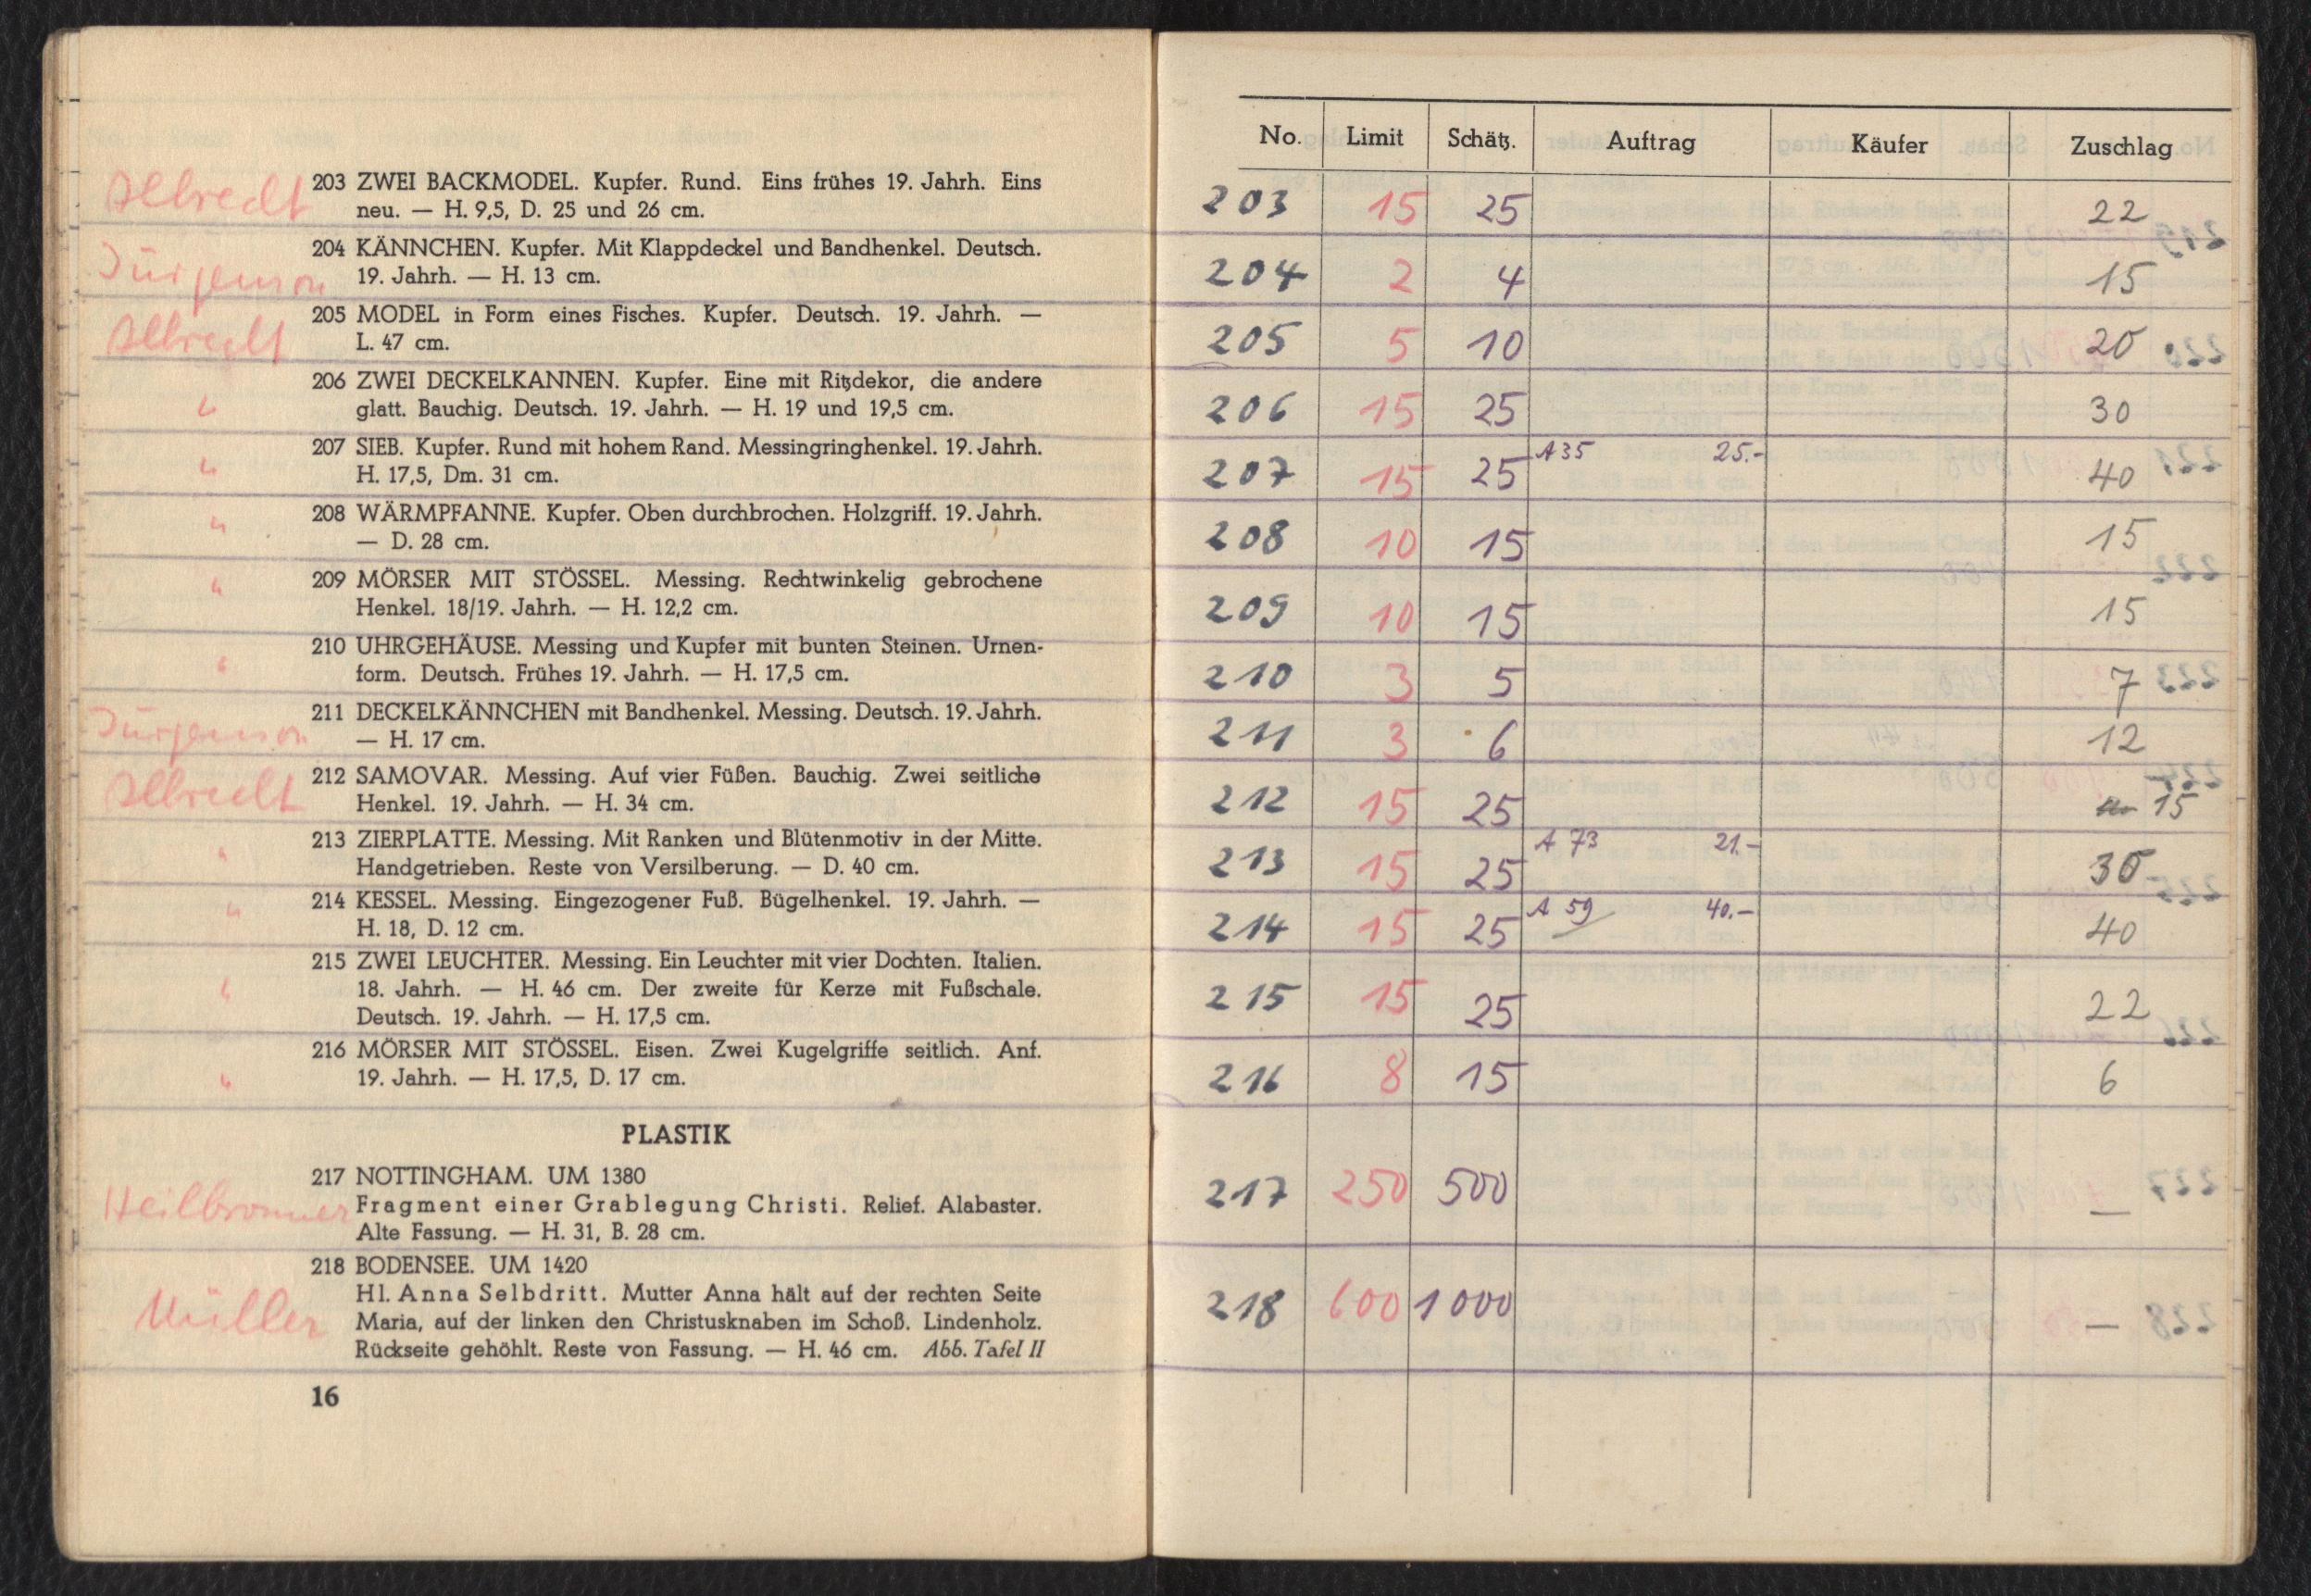 Albrecht
203 ZWEI BACKMODEL. Kupfer. Rund. Eins frühes 19. Jahrh. Eins
neu. — H. 9,5, D. 25 und 26 cm.
Jürgenson
204 KÄNNCHEN. Kupfer. Mit Klappdeckel und Bandhenkel. Deutsch.
19. Jahrh. — H. 13 cm.
Albrecht
205 MODEL in Form eines Fisches. Kupfer. Deutsch. 19. Jahrh. —
L. 47 cm.
"
206 ZWEI DECKELKANNEN. Kupfer. Eine mit Ritzdekor, die andere
glatt. Bauchig. Deutsch. 19. Jahrh. — H. 19 und 19,5 cm.
"
207 SIEB. Kupfer. Rund mit hohem Rand. Messingringhenkel. 19. Jahrh.
H. 17,5, Dm. 31 cm.
"
208 WÄRMPFANNE. Kupfer. Oben durchbrochen. Holzgriff. 19. Jahrh.
— D. 28 cm.
"
209 MÖRSER MIT STÖSSEL. Messing. Rechtwinkelig gebrochene
Henkel. 18/19. Jahrh. — H. 12,2 cm.
"
210 UHRGEHÄUSE. Messing und Kupfer mit bunten Steinen. Urnen-
form. Deutsch. Frühes 19. Jahrh. — H. 17,5 cm.
Jürgenson
211 DECKELKÄNNCHEN mit Bandhenkel. Messing. Deutsch. 19. Jahrh.
— H. 17 cm.
Albrecht
212 SAMOVAR. Messing. Auf vier Füßen. Bauchig. Zwei seitliche
Henkel. 19. Jahrh. — H. 34 cm.
"
213 ZIERPLATTE. Messing. Mit Ranken und Blütenmotiv in der Mitte.
Handgetrieben. Reste von Versilberung. — D. 40 cm.
"
214 KESSEL. Messing. Eingezogener Fuß. Bügelhenkel. 19. Jahrh. —
H. 18, D. 12 cm.
"
215 ZWEI LEUCHTER. Messing. Ein Leuchter mit vier Dochten. Italien.
18. Jahrh. — H. 46 cm. Der zweite für Kerze mit Fußschale.
Deutsch. 19. Jahrh. — H. 17,5 cm.
"
216 MÖRSER MIT STÖSSEL. Eisen. Zwei Kugelgriffe seitlich. Anf.
19. Jahrh. — H. 17,5, D. 17 cm.
PLASTIK
Heilbronner
217 NOTTINGHAM. UM 1380
Fragment einer Grablegung Christi. Relief. Alabaster.
Alte Fassung. — H. 31, B. 28 cm.
Müller
218 BODENSEE. UM 1420
Hl. Anna Selbdritt. Mutter Anna hält auf der rechten Seite
Maria, auf der linken den Christusknaben im Schoß. Lindenholz.
Rückseite gehöhlt. Reste von Fassung. — H. 46 cm. Abb. Tafel II
16
No. Limit Schätz. Auftrag Käufer Zuschlag
203 15 25 22
204 2 4 15
205 5 10 20
206 15 25 30
207 15 25 A 35 25.- 40
208 10 15 15
209 10 15 15
210 3 5 7
211 3 6 12
212 15 25 15
213 15 25 A 73 21.- 30
214 15 25 A 59 40.- 40
215 15 25 22
216 8 15 6
217 250 500 —
218 600 1000 —